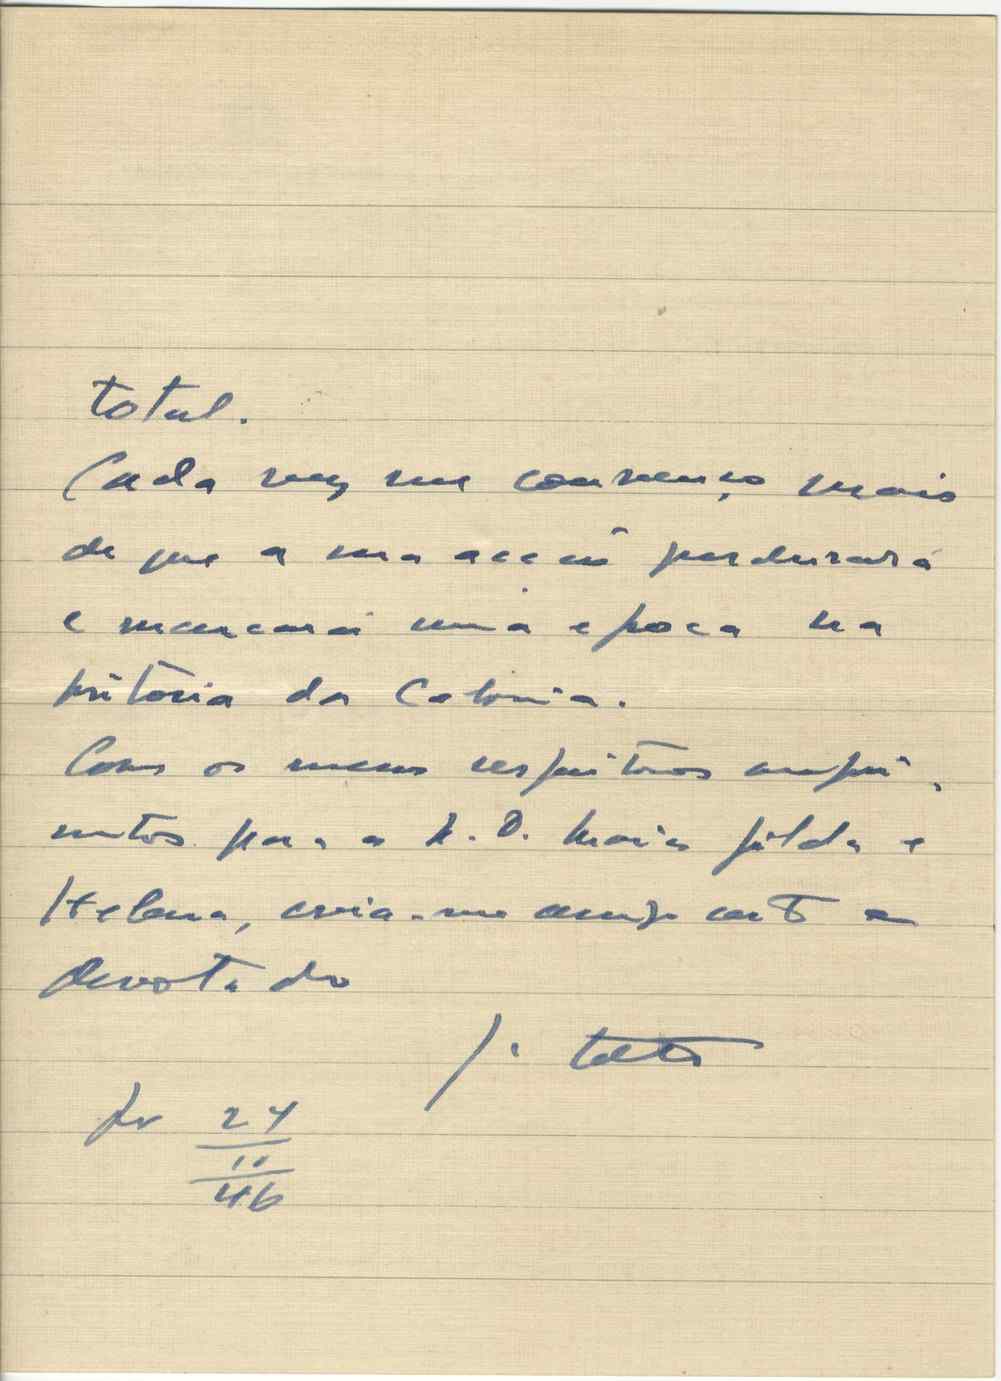 total.
Cada vez me convenço mais
de que a sua acção perdurará
e marcará uma epoca na
história da Colonia.
Com os meus respeitosos cumpri-
mentos para a S. D. Maria Gilda e
Helena, creia-me amigo certo e
devotado
J.
24
11
46